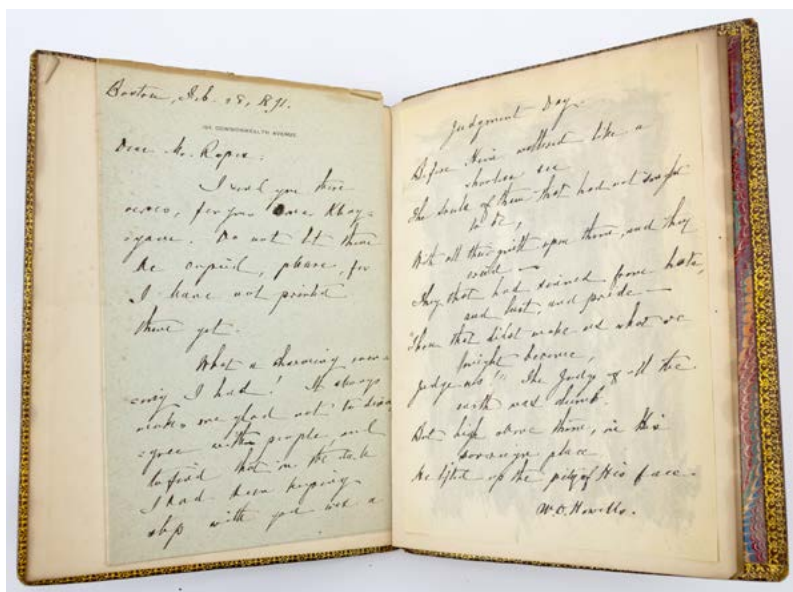 Boston, Feb. 28, 1891.
COMMONWEALTH AVENUE
Dear Mr. Roper:
I send you these
verses, for your Omar Khay-
yam. Do not let them
be copied, please, for
I have not printed
them yet.
What a charming even-
ing I had! It always
makes me glad not to dis-
agree with people, and
to find that in the talk
I had been keeping
step with you was a
Judgment Day.
Before Him weltered like a
shoreless sea
The souls of them that had not sought
to be,
With all their guilt upon them, and they
cried —
They that had sinned from hate,
and lust, and pride —
"Thou that didst make us what we
might become,
Judge us!" The Judge of all the
earth was dumb.
But high above them, in His
sovereign place
He lifted up the pity of His face.
W. D. Howells.